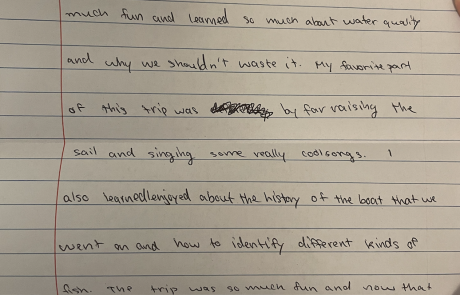 much fun and learned so much about water quality
and why we shouldn't waste it. My favorite part
of this trip was by far raising the
sail and singing some really cool songs. I
also learned/enjoyed about the history of the boat that we
went on and how to identify different kinds of
fish. The trip was so much fun and now that